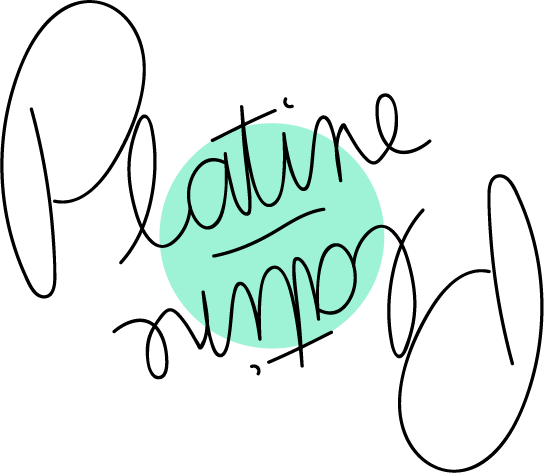 Platine
Platine